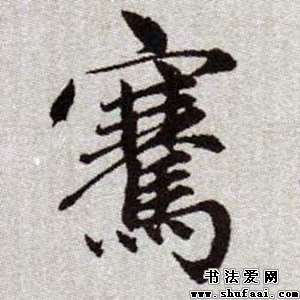 騫
书法爱网
www.shufaai.com